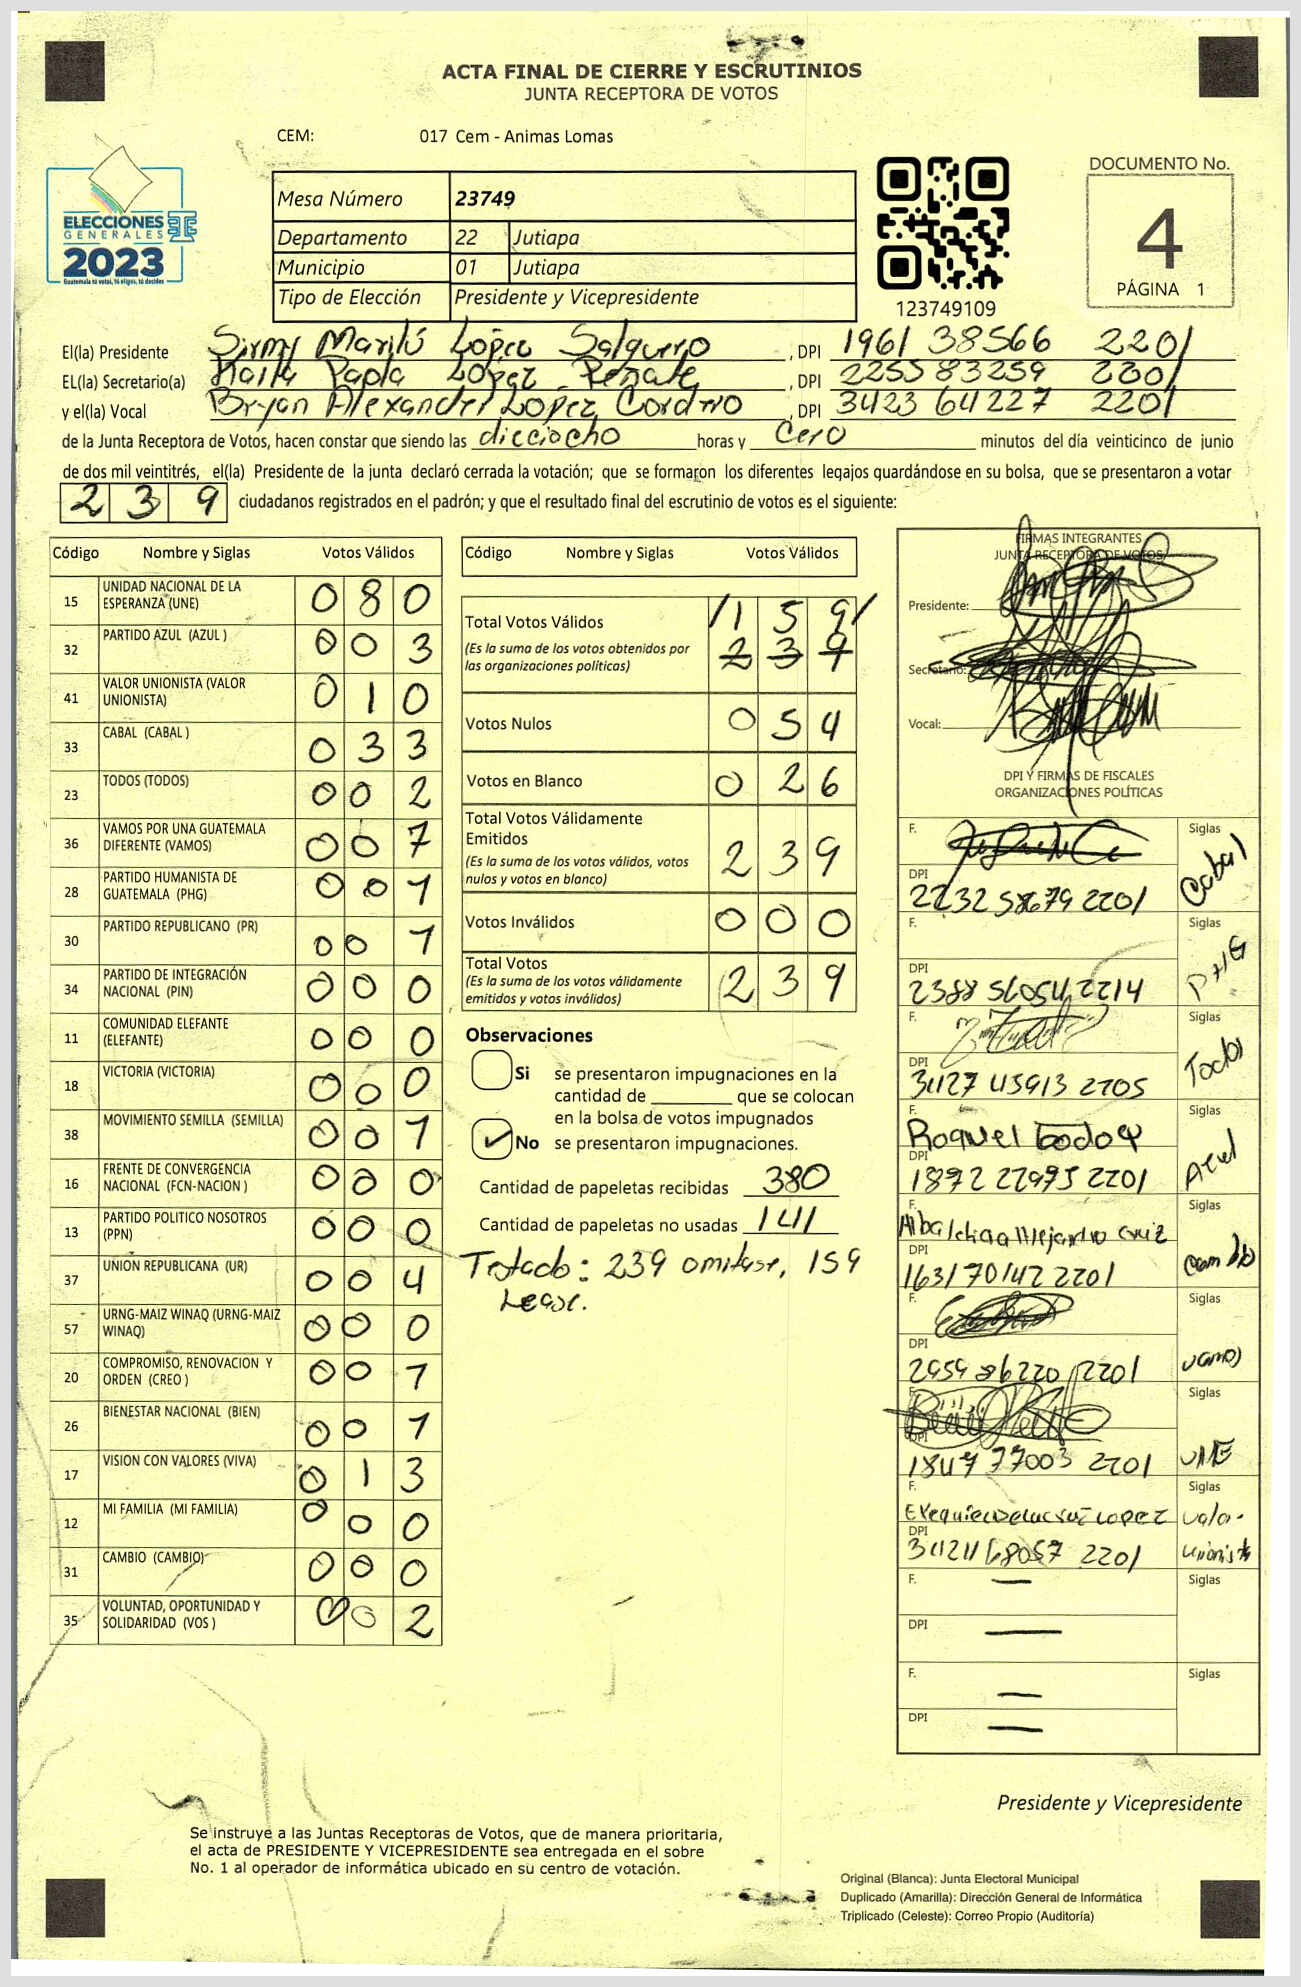 ACTA FINAL DE CIERRE Y ESCRUTINIOS
JUNTA RECEPTORA DE VOTOS
CEM: 017 Cem - Animas Lomas
ELECCIONES
GENERALES
2023
Guatemala tú votas, tú eliges, tú decides
Mesa Número 23749
Departamento 22 Jutiapa
Municipio 01 Jutiapa
Tipo de Elección Presidente y Vicepresidente
123749109
DOCUMENTO No.
4
PÁGINA 1
El(la) Presidente Sirmy Marilú López Salguero , DPI 1961 38566 2201
EL(la) Secretario(a) Karla Paola López Peñate , DPI 2255 83259 2201
y el(la) Vocal Bryan Alexander Lopez Cordero , DPI 3423 64227 2201
de la Junta Receptora de Votos, hacen constar que siendo las dieciocho horas y Cero minutos del día veinticinco de junio
de dos mil veintitrés, el(la) Presidente de la junta declaró cerrada la votación; que se formaron los diferentes legajos guardándose en su bolsa, que se presentaron a votar
239 ciudadanos registrados en el padrón; y que el resultado final del escrutinio de votos es el siguiente:
Código Nombre y Siglas Votos Válidos
15 UNIDAD NACIONAL DE LA ESPERANZA (UNE) 0 8 0
32 PARTIDO AZUL (AZUL ) 0 0 3
41 VALOR UNIONISTA (VALOR UNIONISTA) 0 1 0
33 CABAL (CABAL ) 0 3 3
23 TODOS (TODOS) 0 0 2
36 VAMOS POR UNA GUATEMALA DIFERENTE (VAMOS) 0 0 7
28 PARTIDO HUMANISTA DE GUATEMALA (PHG) 0 0 1
30 PARTIDO REPUBLICANO (PR) 0 0 1
34 PARTIDO DE INTEGRACIÓN NACIONAL (PIN) 0 0 0
11 COMUNIDAD ELEFANTE (ELEFANTE) 0 0 0
18 VICTORIA (VICTORIA) 0 0 0
38 MOVIMIENTO SEMILLA (SEMILLA) 0 0 1
16 FRENTE DE CONVERGENCIA NACIONAL (FCN-NACION ) 0 0 0
13 PARTIDO POLITICO NOSOTROS (PPN) 0 0 0
37 UNION REPUBLICANA (UR) 0 0 4
57 URNG-MAIZ WINAQ (URNG-MAIZ WINAQ) 0 0 0
20 COMPROMISO, RENOVACION Y ORDEN (CREO ) 0 0 1
26 BIENESTAR NACIONAL (BIEN) 0 0 1
17 VISION CON VALORES (VIVA) 0 1 3
12 MI FAMILIA (MI FAMILIA) 0 0 0
31 CAMBIO (CAMBIO) 0 0 0
35 VOLUNTAD, OPORTUNIDAD Y SOLIDARIDAD (VOS ) 0 0 2
Código Nombre y Siglas Votos Válidos
Total Votos Válidos /1 5 9/
(Es la suma de los votos obtenidos por las organizaciones políticas) 2 3 9
Votos Nulos 0 5 4
Votos en Blanco 0 2 6
Total Votos Válidamente Emitidos
(Es la suma de los votos válidos, votos nulos y votos en blanco) 2 3 9
Votos Inválidos 0 0 0
Total Votos
(Es la suma de los votos válidamente emitidos y votos inválidos) 2 3 9
Observaciones
Si se presentaron impugnaciones en la
cantidad de ________ que se colocan
en la bolsa de votos impugnados
No se presentaron impugnaciones.
Cantidad de papeletas recibidas 380
Cantidad de papeletas no usadas 141
Testado: 239 omitase, 159
Lease.
FIRMAS INTEGRANTES
JUNTA RECEPTORA DE VOTOS
Presidente:
Secretario:
Vocal:
DPI Y FIRMAS DE FISCALES
ORGANIZACIONES POLÍTICAS
F. Siglas Cabal
DPI 2232 58679 2201
F. Siglas PHG
DPI 2388 56054 2214
F. Siglas Todos
DPI 3427 45913 2205
F. Raquel Godoy Siglas Azul
DPI 1892 22975 2201
F. Siglas
DPI 1631 70142 2201
F. Siglas Vamos
DPI 2959 86220 2201
F. Siglas UNE
DPI 1847 77003 2201
F. Siglas Valor Unionista
DPI 2201
F. — Siglas
DPI —
F. — Siglas
DPI —
Presidente y Vicepresidente
Se instruye a las Juntas Receptoras de Votos, que de manera prioritaria,
el acta de PRESIDENTE Y VICEPRESIDENTE sea entregada en el sobre
No. 1 al operador de informática ubicado en su centro de votación.
Original (Blanca): Junta Electoral Municipal
Duplicado (Amarilla): Dirección General de Informática
Triplicado (Celeste): Correo Propio (Auditoría)